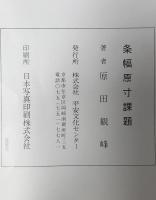 条幅原寸課題
著者 原田観峰
発行所 株式会社 平安文化センター
電話〇七五-七五一-一七七八
印刷所 日本写真印刷株式会社